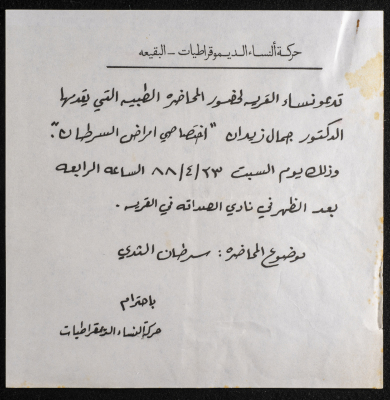 حركة ألنساء الديموقراطيات – البقيعه
تدعو نساء القريه لحضور المحاضره الطبيه التي يقدمها
الدكتور جمال زيدان "اختصاصي امراض السرطان".
وذلك يوم السبت ٨٨/٤/٢٣ الساعه الرابعه
بعد الظهر في نادي الصداقه في القريه .
موضوع المحاضره : سرطان الثدي
باحترام
حركة النساء الديمقراطيات